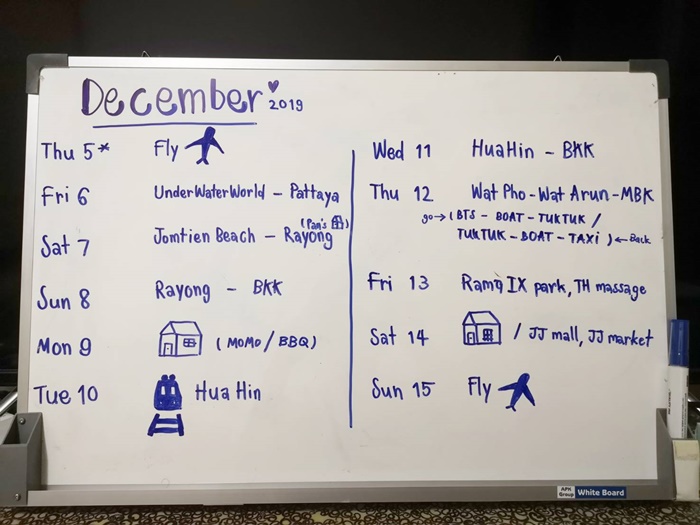 December 2019
Thu 5* Fly
Fri 6 UnderWaterWorld - Pattaya
Sat 7 Jomtien Beach - Rayong (Pan's)
Sun 8 Rayong - BKK
Mon 9 (MOMO / BBQ)
Tue 10 Hua Hin
Wed 11 HuaHin - BKK
Thu 12 Wat Pho - Wat Arun - MBK
go → (BTS - BOAT - TUKTUK /
TUKTUK - BOAT - TAXi) ← Back
Fri 13 Rama IX park, TH massage
Sat 14 / JJ mall, JJ market
Sun 15 Fly
APH Group White Board